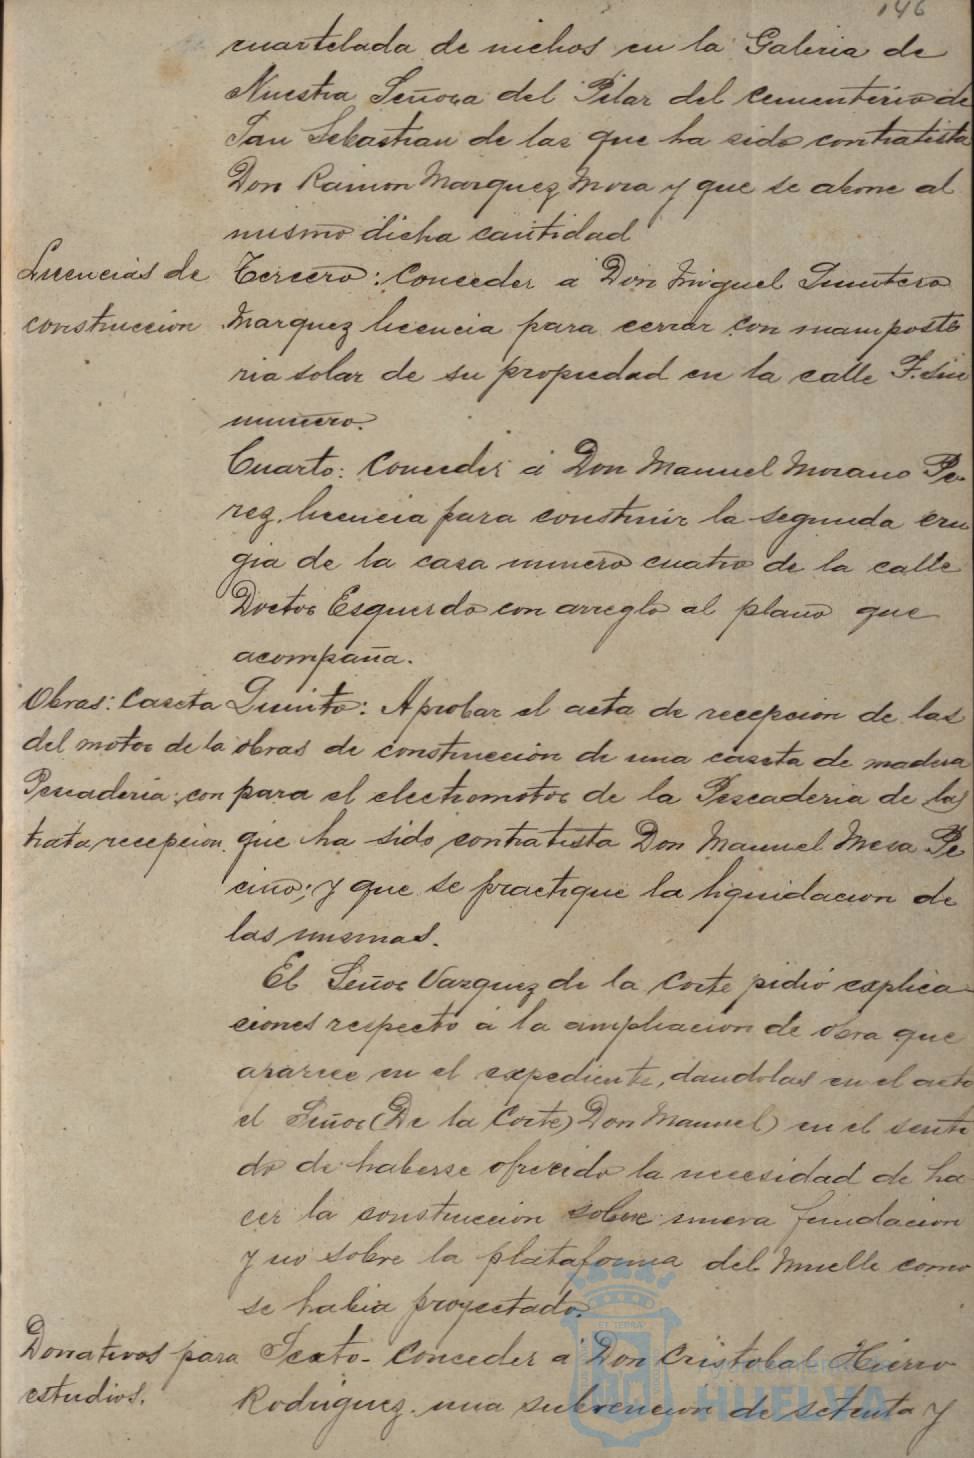 146
cuartelada de nichos en la Galeria de
Nuestra Señora del Pilar del cementerio de
San Sebastian de las que ha sido contratista
Don Ramon Marquez Mora y que se abone al
mismo dicha cantidad
Licencias de
construccion
Tercero: Conceder a Don Miguel Quintero
Marquez licencia para cerrar con mamposte
ria solar de su propiedad en la calle F. sin
numero.
Cuarto: Conceder á Don Manuel Morano Pe-
rez licencia para construir la segunda cru
gia de la casa numero cuatro de la calle
Doctor Esquerdo con arreglo al plano que
acompaña.
Obras: Caseta
del motor de la
Pescaderia: con
trata recepcion.
Quinto: Aprobar el acta de recepcion de las
obras de construcción de una caseta de madera
para el electromotor de la Pescaderia de las
que ha sido contratista Don Manuel Mesa Pe
cino; y que se practique la liquidacion de
las mismas.
El Señor Vazquez de la Corte pidió explica-
ciones respecto á la ampliacion de obra que
aparece en el expediente, dandolas en el acto
el Señor (De la Corte) Don Manuel) en el senti
do de haberse ofrecido la necesidad de ha
cer la construccion sobre nueva fundacion
y no sobre la plataforma del Muelle como
se habia proyectado.
Donativos para
estudios.
Sexto- Conceder á Don Cristobal Hierro
Rodriguez una subvencion de setenta y
HUELVA